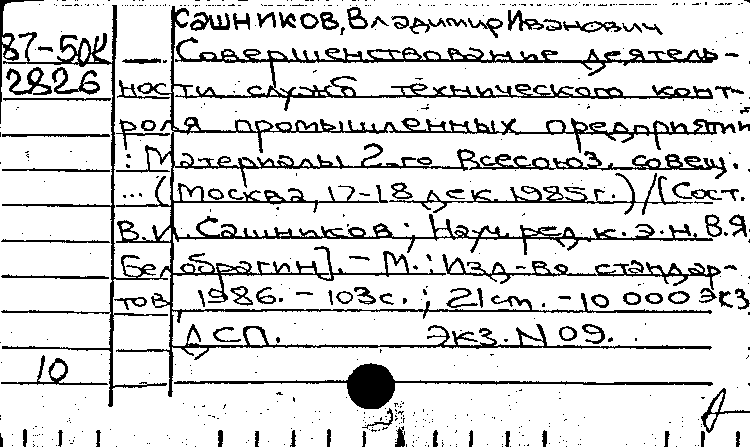 Сашников, Владимир Иванович
87-50К — Совершенствование деятель-
2826 ности служб технического конт-
роля промышленных предприятий
: Материалы 2-го Всесоюз. совещ.
... (Москва, 17-18 дек. 1985г.) / [Сост.
В.И. Сашников; Науч. ред. к.э.н. В.Я.
Белобрагин]. - М.: Изд-во стандар-
тов, 1986. - 103с.; 21см. - 10 000 экз
ДСП. Экз. N 09.
10